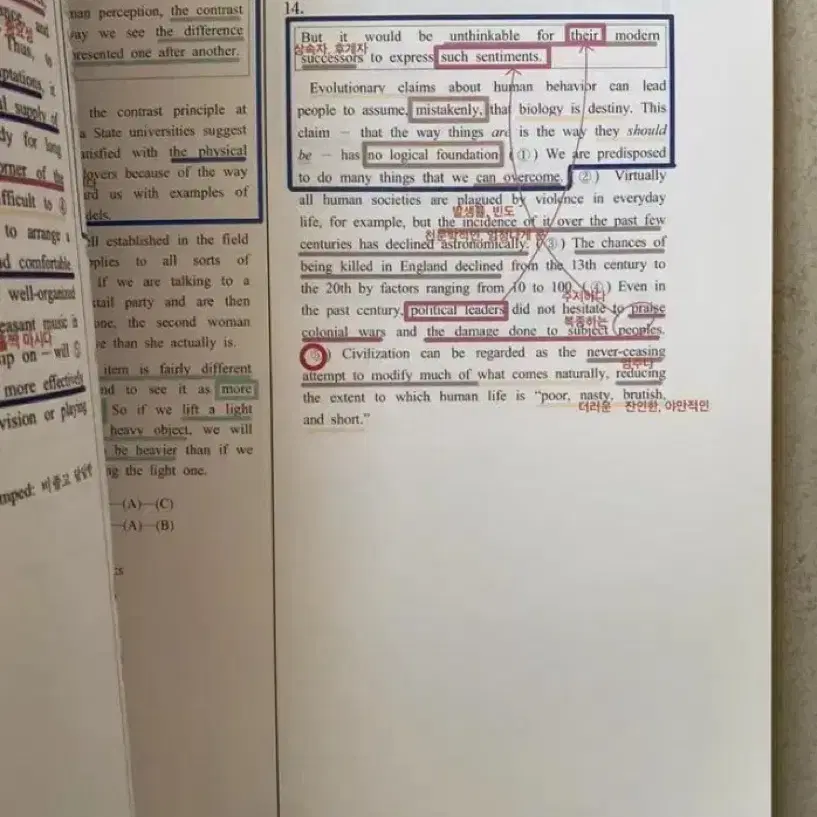 man perception, the contrast
way we see the difference
presented one after another.
the contrast principle at
a State universities suggest
satisfied with the physical
lovers because of the way
us with examples of
dels.
ll established in the field
pplies to all sorts of
if we are talking to a
tail party and are then
one, the second woman
e than she actually is.
item is fairly different
nd to see it as more
So if we lift a light
heavy object, we will
be heavier than if we
ng the light one.
(A)—(C)
(A)—(B)
Thus, to
ptations, it
l supply of
dy for long
orner of the
fficult to ④
to arrange a
d comfortable
well-organized
easant music is
mp on — will ⑤
more effectively
vision or playing
mped:
14.
But it would be unthinkable for their modern
상속자, 후계자
successors to express such sentiments.
Evolutionary claims about human behavior can lead
people to assume, mistakenly, that biology is destiny. This
claim — that the way things are is the way they should
be — has no logical foundation. (①) We are predisposed
to do many things that we can overcome. (②) Virtually
all human societies are plagued by violence in everyday
발생률, 빈도
life, for example, but the incidence of it over the past few
centuries has declined astronomically. (③) The chances of
being killed in England declined from the 13th century to
the 20th by factors ranging from 10 to 100. (④) Even in
주저하다
the past century, political leaders did not hesitate to praise
복종하는
colonial wars and the damage done to subject peoples.
(⑤) Civilization can be regarded as the never-ceasing
멈추다
attempt to modify much of what comes naturally, reducing
the extent to which human life is “poor, nasty, brutish,
더러운 잔인한, 야만적인
and short.”